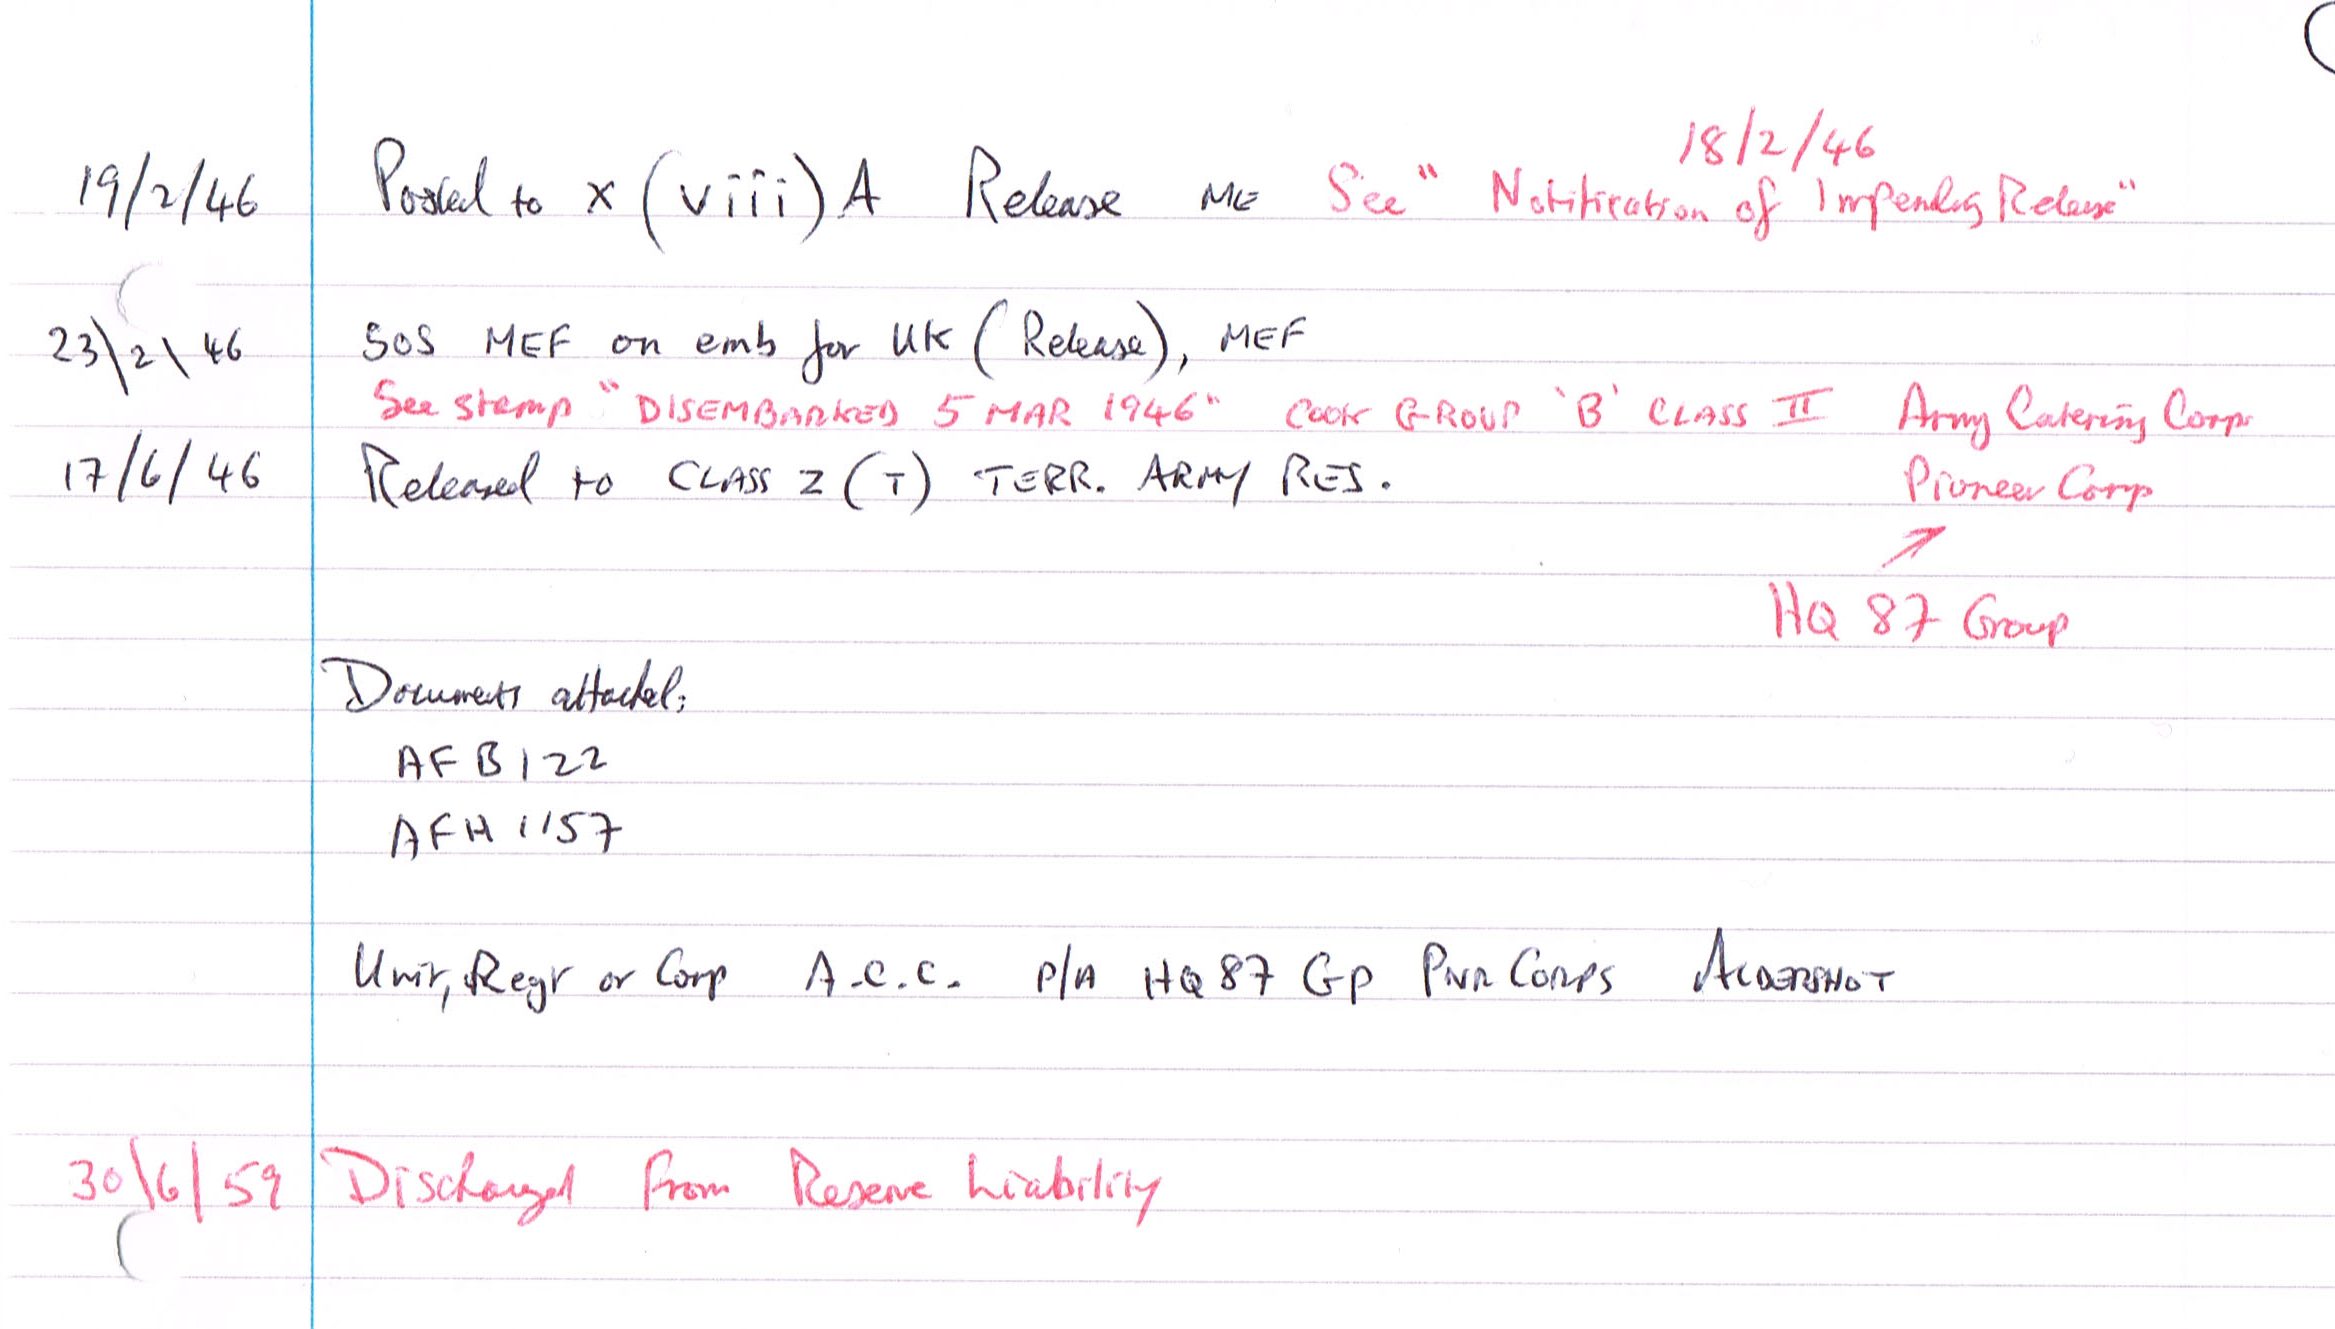 18/2/46
19/2/46 Posted to x (viii) A Release ME See "Notification of Impending Release"
23\2\46 SOS MEF on emb for UK (Release), MEF
See stamp "DISEMBARKED 5 MAR 1946" COOK GROUP 'B' CLASS II Army Catering Corps
17/6/46 Released to CLASS Z (T) TERR. ARMY RES. Pioneer Corp
HQ 87 Group
Documents attached:
AF B122
AFH 1157
Unit, Regt or Corp A.C.C. P/A HQ 87 GP PNR CORPS ALDERSHOT
30\6/59 Discharged from Reserve Liability